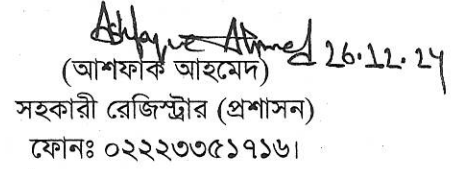 Ashfaque Ahmed 26.12.24
(আশফাক আহমেদ)
সহকারী রেজিস্ট্রার (প্রশাসন)
ফোনঃ ০২২২৩৩৫১৭১৬।